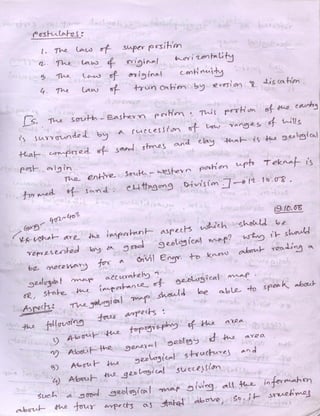 Postulates:
1. The law of super position
2. The law of original horizontality
3. The law of original continuity
4. The law of trun cation by erosion & dislocation.
[5. The south-Eastern portion: This portion of the country
is surrounded by a succession of low ranges of hills
that composed of sand stones and clay that is the geological
post origin.
The entire south-western portion upto Teknaf is
formed of sand. Chittagong Division]→ 10.08.
19.10.08
402-403
What are the important aspects which should be
represented by a good geological map? Why it should
be necessary for a Civil Engr. to know about reading a
geological map accurately?
or, State the importance of geological map.
Aspects: The geological map should be able to speak about
the following four aspects:
1) About the topography of the area
2) About the general geology of the area
3) About the geological structures and
4) About the geological succession
Such a good geological map giving all the information
about the four aspects as stated above, so, it sometimes